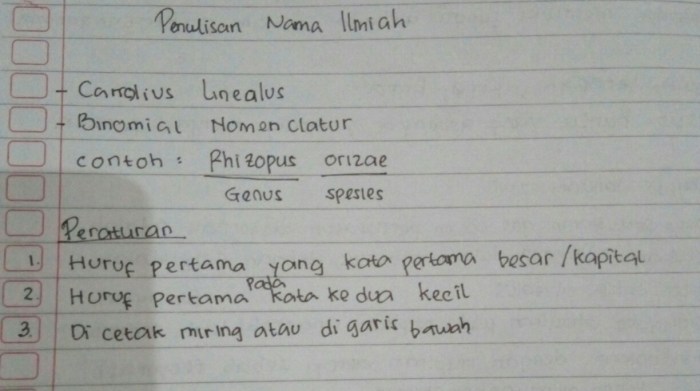 Penulisan Nama Ilmiah
- Carrolius Linealus
- Binomial Nomenclatur
contoh : Rhizopus orizae
Genus spesies
Peraturan
1. Huruf pertama yang kata pertama besar/kapital
2. Huruf pertama pada kata ke dua kecil
3. Di cetak miring atau di garis bawah